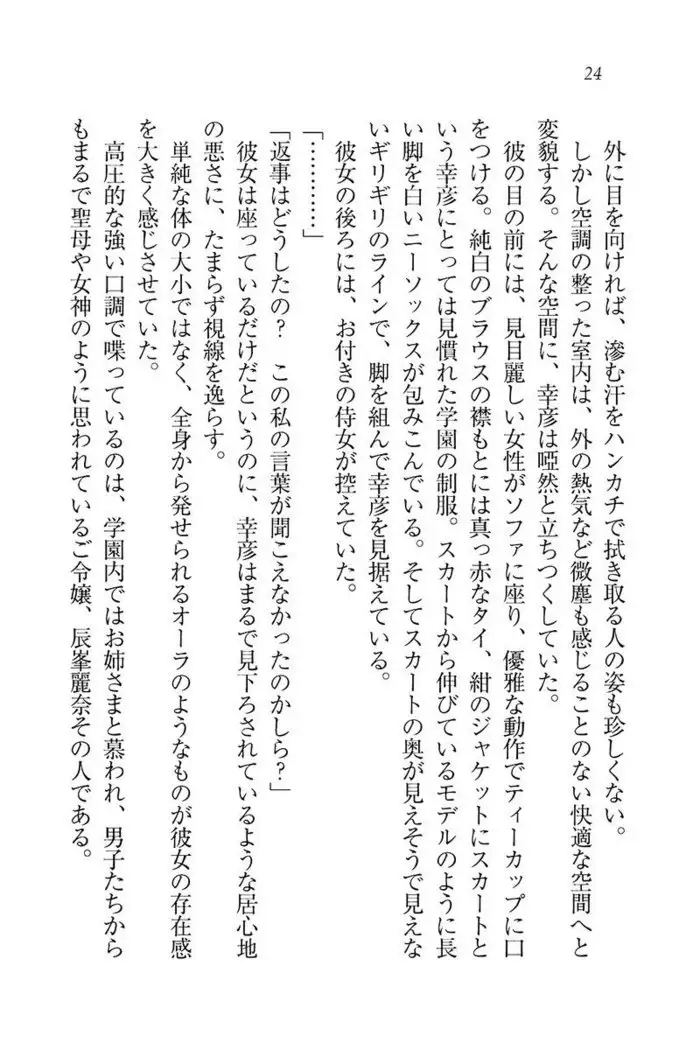 24
外に目を向ければ、滲む汗をハンカチで拭き取る人の姿も珍しくない。
しかし空調の整った室内は、外の熱気など微塵も感じることのない快適な空間へと
変貌する。そんな空間に、幸彦は啞然と立ちつくしていた。
彼の目の前には、見目麗しい女性がソファに座り、優雅な動作でティーカップに口
をつける。純白のブラウスの襟もとには真っ赤なタイ、紺のジャケットにスカートと
いう幸彦にとっては見慣れた学園の制服。スカートから伸びているモデルのように長
い脚を白いニーソックスが包みこんでいる。そしてスカートの奥が見えそうで見えな
いギリギリのラインで、脚を組んで幸彦を見据えている。
彼女の後ろには、お付きの侍女が控えていた。
「…………」
「返事はどうしたの？　この私の言葉が聞こえなかったのかしら？」
彼女は座っているだけだというのに、幸彦はまるで見下ろされているような居心地
の悪さに、たまらず視線を逸らす。
単純な体の大小ではなく、全身から発せられるオーラのようなものが彼女の存在感
を大きく感じさせていた。
高圧的な強い口調で喋っているのは、学園内ではお姉さまと慕われ、男子たちから
もまるで聖母や女神のように思われているご令嬢、辰峯麗奈その人である。